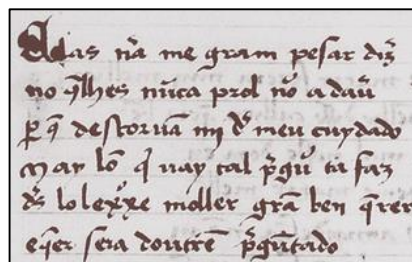 Mas nr̃a me gram pesar diz̃
no q̃lhes nũca prol nõ a daũ
ꝑ q̃ destoruã mĩ d̃ meu cuydado
may lõ q̃ uay tal p̃gũ ta faz
d̃s lo lexxe moller grã ben q̃rer
eq̃er sera doutrẽ p̃gũtado